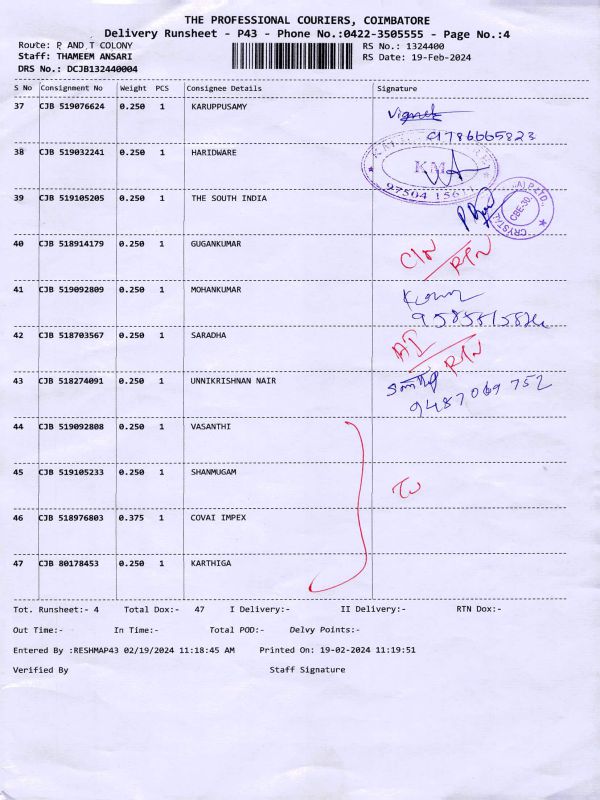 THE PROFESSIONAL COURIERS, COIMBATORE
Delivery Runsheet - P43 - Phone No.:0422-3505555 - Page No.:4
Route: P AND T COLONY RS No.: 1324400
Staff: THAMEEM ANSARI RS Date: 19-Feb-2024
DRS No.: DCJB132440004
S No Consignment No Weight PCS Consignee Details Signature
37 CJB 519076624 0.250 1 KARUPPUSAMY
9786665823
38 CJB 519032241 0.250 1 HARIDWARE
KM
39 CJB 519105205 0.250 1 THE SOUTH INDIA
CBE-30
40 CJB 518914179 0.250 1 GUGANKUMAR
RTN
41 CJB 519092809 0.250 1 MOHANKUMAR
42 CJB 518703567 0.250 1 SARADHA
RTN
43 CJB 518274091 0.250 1 UNNIKRISHNAN NAIR
9487069752
44 CJB 519092808 0.250 1 VASANTHI
45 CJB 519105233 0.250 1 SHANMUGAM
46 CJB 518976803 0.375 1 COVAI IMPEX
47 CJB 80178453 0.250 1 KARTHIGA
Tot. Runsheet:- 4 Total Dox:- 47 I Delivery:- II Delivery:- RTN Dox:-
Out Time:- In Time:- Total POD:- Delvy Points:-
Entered By :RESHMAP43 02/19/2024 11:18:45 AM Printed On: 19-02-2024 11:19:51
Verified By Staff Signature